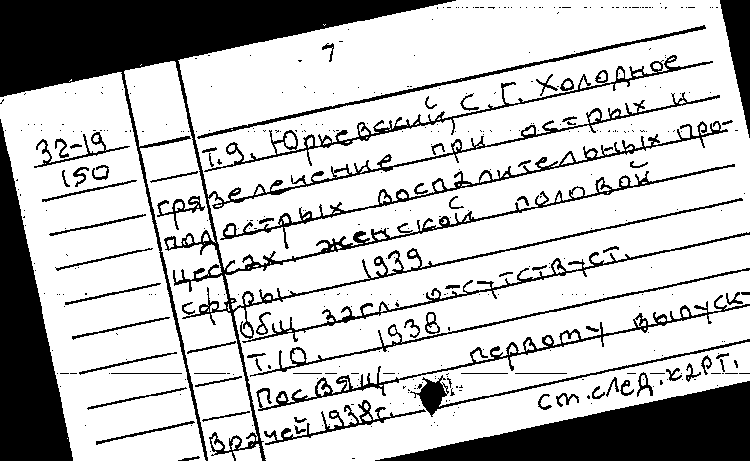 7
32-19
150
т.9. Юрьевский, С.Г. Холодное
грязелечение при острых и
подострых воспалительных про-
цессах женской половой
сферы. 1939.
Общ. загл. отсутствует.
т.10. 1938.
Посвящ. первому выпуск
врачей 1938г.
см.след.карт.